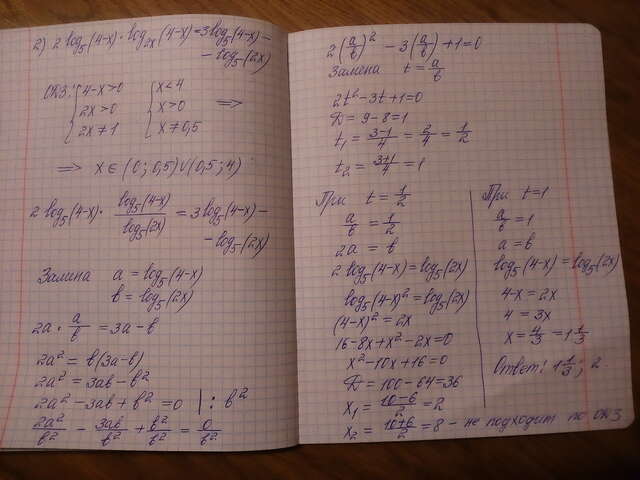 2) 2 log₅(4-x) · log₂ₓ(4-x) = 3log₅(4-x) -
- log₅(2x)
ОКЗ: { 4-x>0 { x<4
2x>0 x>0 =>
2x≠1 x≠0,5
=> x ∈ (0; 0,5)∪(0,5; 4)
2 log₅(4-x) · log₅(4-x)/log₅(2x) = 3log₅(4-x) -
- log₅(2x)
Замена a = log₅(4-x)
b = log₅(2x)
2a · a/b = 3a-b
2a² = b(3a-b)
2a² = 3ab - b²
2a² - 3ab + b² = 0 | : b²
2a²/b² - 3ab/b² + b²/b² = 0/b²
2(a/b)² - 3(a/b) + 1 = 0
Замена t = a/b
2t² - 3t + 1 = 0
D = 9 - 8 = 1
t₁ = (3-1)/4 = 2/4 = 1/2
t₂ = (3+1)/4 = 1
При t = 1/2
a/b = 1/2
2a = b
2 log₅(4-x) = log₅(2x)
log₅(4-x)² = log₅(2x)
(4-x)² = 2x
16 - 8x + x² - 2x = 0
x² - 10x + 16 = 0
D = 100 - 64 = 36
x₁ = (10-6)/2 = 2
x₂ = (10+6)/2 = 8 - не подходит по ОКЗ
При t = 1
a/b = 1
a = b
log₅(4-x) = log₅(2x)
4-x = 2x
4 = 3x
x = 4/3 = 1 1/3
Ответ: 1 1/3; 2.